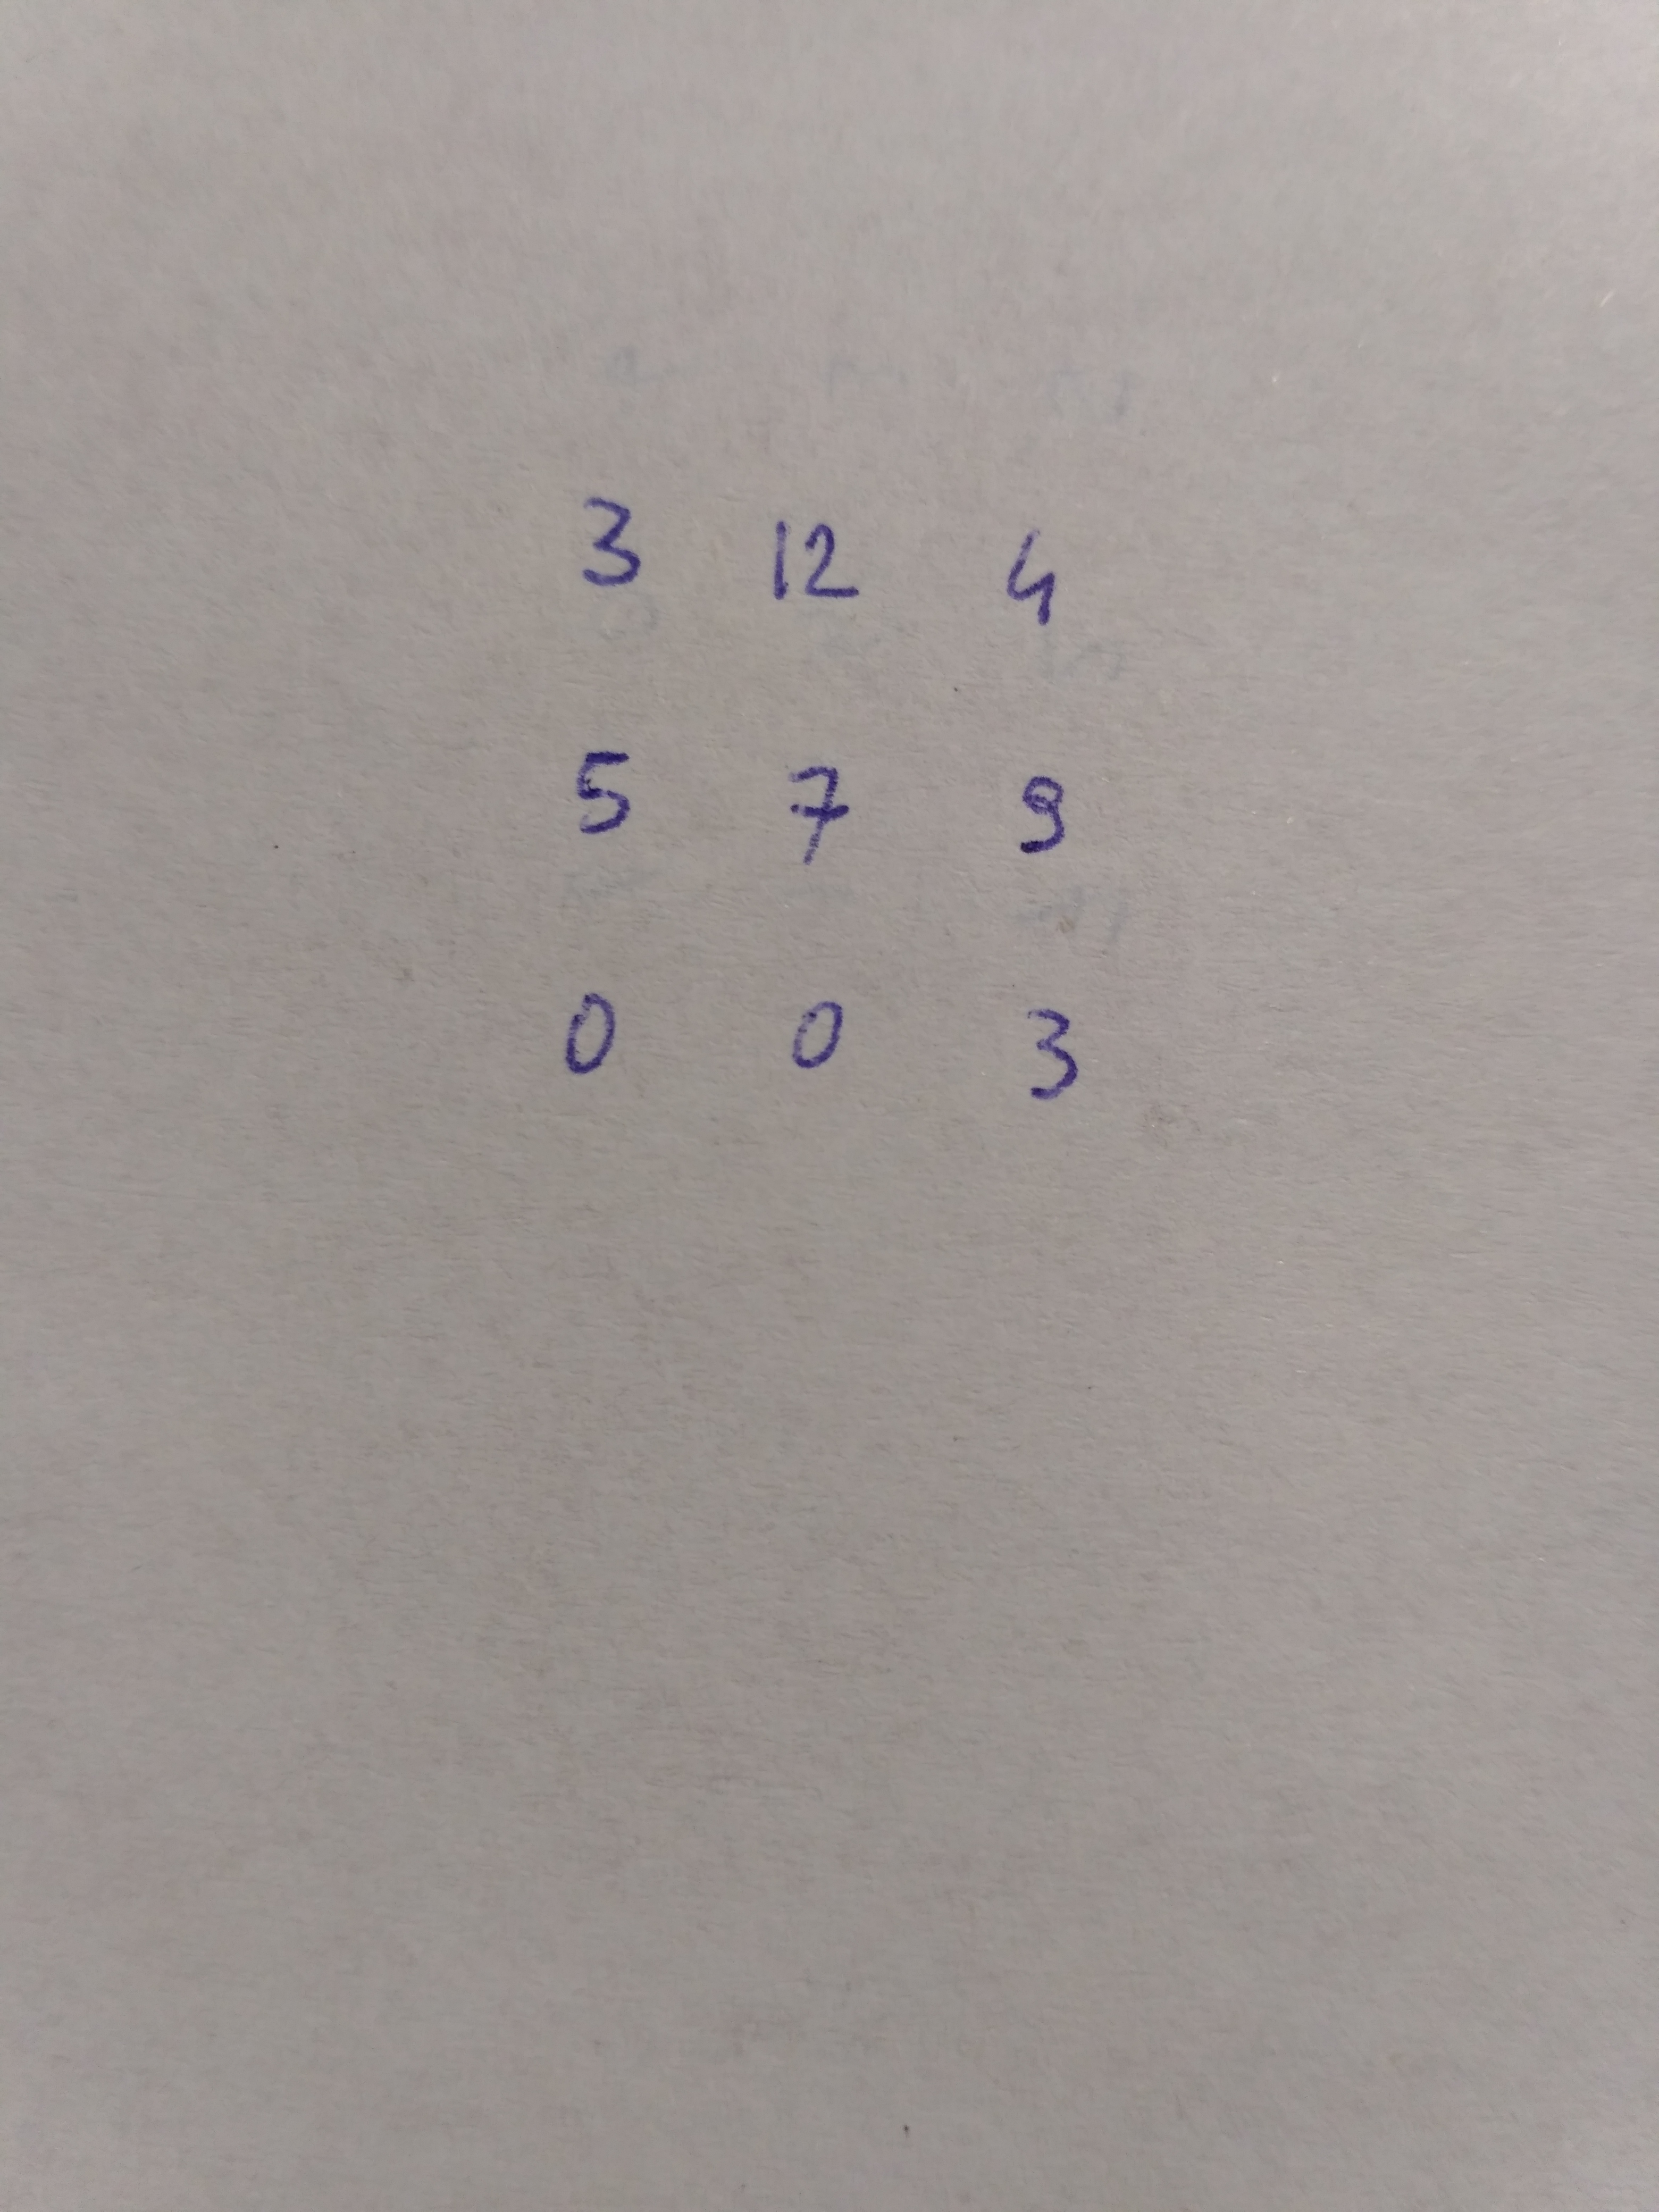 3 12 4
5 7 9
0 0 3